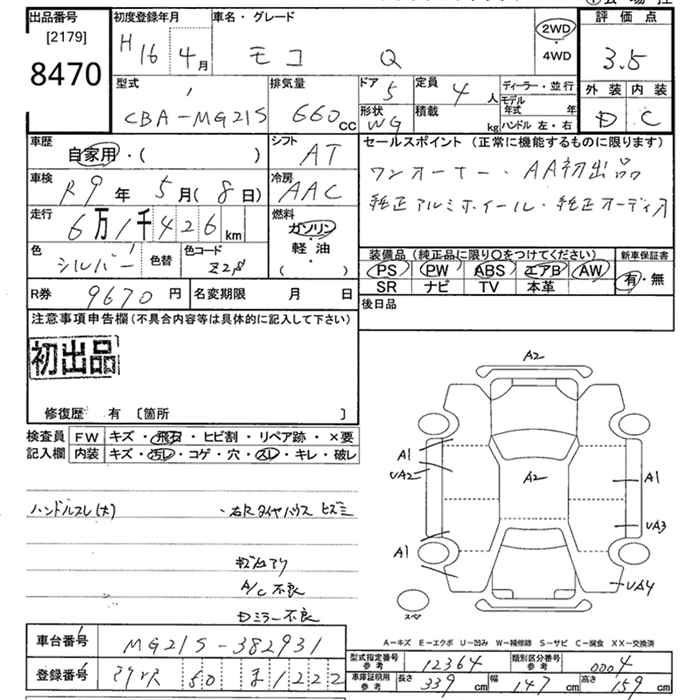 出品番号
[2179]
8470
初度登録年月
H 16 4月
車名・グレード
モコ Q
2WD
・
4WD
評価点
3.5
外装 内装
D C
型式
CBA-MG21S
排気量
660cc
ドア
5
形状
WG
定員
4人
積載
kg
ディーラー・並行
モデル年式 年
ハンドル 左・右
車歴
自家用・( )
シフト
AT
車検
R9年 5月(8日)
冷房
AAC
走行
6万1千426km
燃料
ガソリン
軽・油
( )
色
シルバー
色替
色カラーコード
Z28
R券
9670円
名変期限 月 日
セールスポイント (正常に機能するものに限ります)
ワンオーナー・AA初出品
純正アルミホイール・純正オーディオ
装備品 (純正品に限り○をつけてください)
PS PW ABS エアB AW
SR ナビ TV 本革
新車保証書
有・無
後日品
注意事項申告欄(不具合内容等は具体的に記入して下さい)
初出品
修復歴 有 [箇所 ]
検査員記入欄
FW キズ・飛石・ヒビ割・リペア跡・×要
内装 キズ・汚レ・コゲ・穴・スレ・キレ・破レ
ハンドルスレ(大)
・右Rタイヤハウス ヒズミ
キズ凹アリ
A/C不良
Dミラー不良
A2
A1
UA2
A2
A1
UA3
A1
UA4
スペア
A-キズ E-エクボ U-凹み W-補修跡 S-サビ C-腐食 XX-交換済
車台番号
MG21S-382931
登録番号
50 ま 1222
型式指定番号
参考
12364
類別区分番号
参考
0004
車庫証明用
参考
長さ 339cm 幅 147cm 高さ 159cm